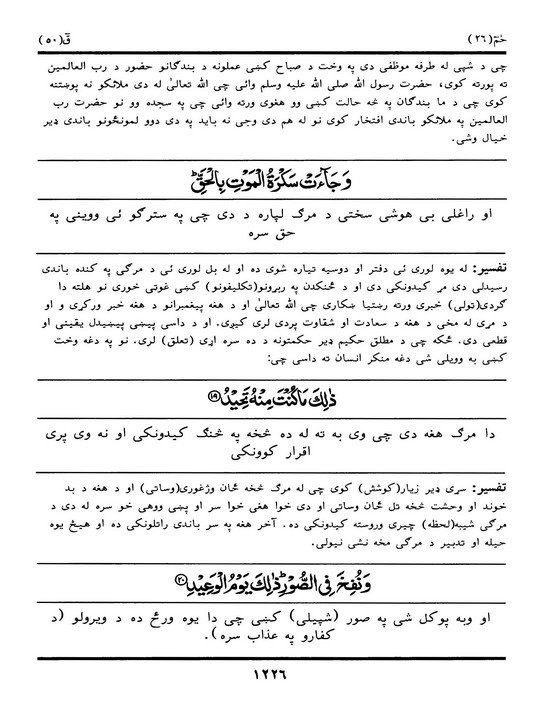 حٰمٓ(٢٦)
قٓ(٥٠)
چی د شپی له طرفه موظفی دی په وخت د صباح کښی عملونه د بندگانو حضور د رب العالمین
ته پورته کوی، حضرت رسول الله صلی الله علیه وسلم وائی چی الله تعالیٰ له دی ملائکو نه پوښتنه
کوی چی د ما بندگان په څه حالت کښی وو هغوی ورته وائی چی په سجده وو نو حضرت رب
العالمین په ملائکو باندی افتخار کوی نو له هم دی وجی نه باید په دی دوو لمونځونو باندی ډیر
خیال وشی.
وَجَآءَتْ سَكْرَةُ الْمَوْتِ بِالْحَقِّ ؕ
او راغلی بی هوشی سختی د مرگ لپاره د دی چی په سترگو ئی ووینی په
حق سره
تفسیر: له یوه لوری ئی دفتر او دوسیه تیاره شوی ده او له بل لوری ئی د مرگی په کنده باندی
رسیدلی دی مر کیدونکی دی او د ځنکدن په ربړونو(تکلیفونو) کښی غوتی خوری نو هلته دا
گردی(تولی) خبری ورته رښتیا ښکاری چی الله تعالیٰ او د هغه پیغمبرانو د هغه خبر ورکړی و او
د مړی له مخی د هغه د سعادت او شقاوت پردی لری کیږی. او د داسی پیښی پیښیدل یقینی او
قطعی دی. ځکه چی د مطلق حکیم ډیر حکمتونه د ده سره اړی (تعلق) لری. نو په دغه وخت
کښی به وویلی شی دغه منکر انسان ته داسی چی:
ذٰلِكَ مَا كُنْتَ مِنْهُ تَحِيْدُ ﴿١٩﴾
دا مرگ هغه دی چی وی به ته له ده څخه په څنگ کیدونکی او نه وی پری
اقرار کوونکی
تفسیر: سړی ډیر زیار(کوشش) کوی چی له مرگ څخه ځان وژغوری(وساتی) او د هغه د بد
خوند او وحشت څخه تل ځان وساتی او دی خوا هغی خوا سر او پښی ووهی خو سره له دی د
مرگی شیبه(لحظه) چیری وروسته کیدونکی ده. آخر هغه په سر باندی راتلونکی ده او هیڅ یوه
حیله او تدبیر د مرگی مخه نشی نیولی.
وَنُفِخَ فِی الصُّوْرِ ؕ ذٰلِكَ يَوْمُ الْوَعِيْدِ ﴿٢٠﴾
او وبه پوکل شی په صور (شپیلی) کښی چی دا یوه ورځ ده د ویرولو (د
کفارو په عذاب سره).
١٢٢٦